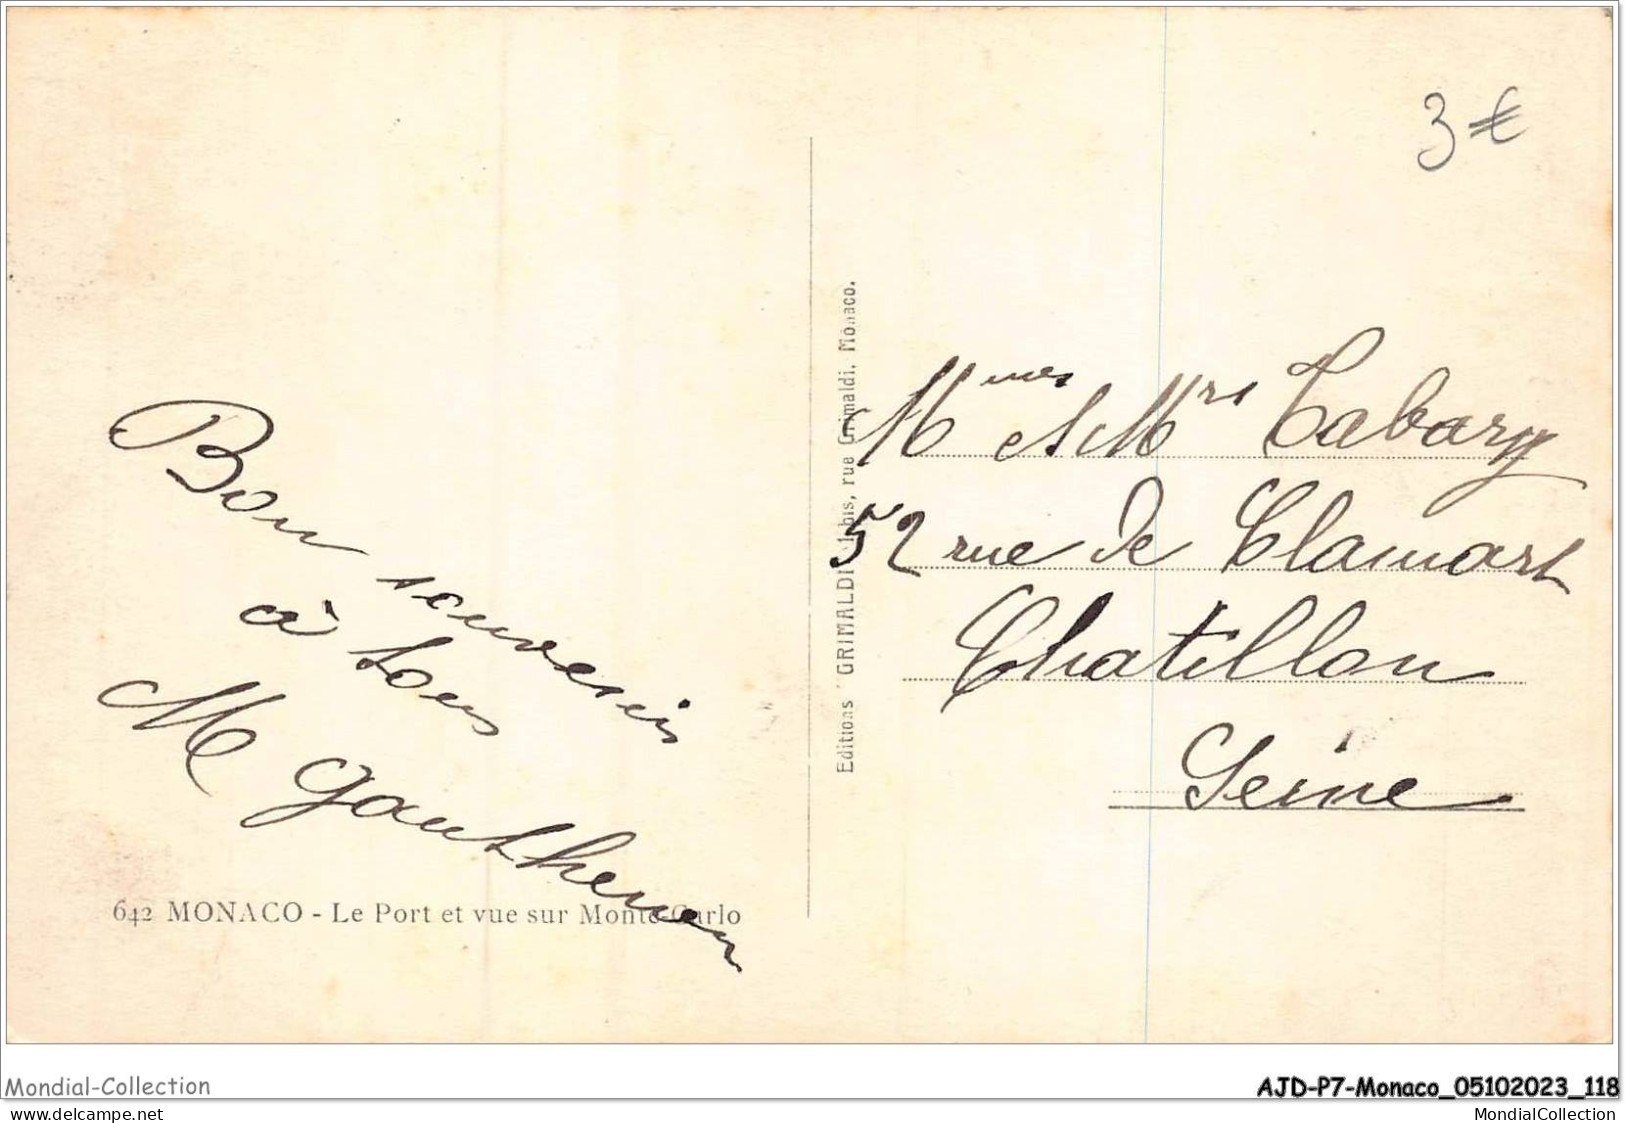 3 €
Bon souvenir
à tous
M Gautheron
642 MONACO - Le Port et vue sur Monte-Carlo
Editions GRIMALDI, 1 bis, rue Grimaldi, Monaco.
Mmes et Mrs Tabary
52 rue de Clamart
Chatillon
Seine
Mondial-Collection
AJD-P7-Monaco_05102023_118
www.delcampe.net
MondialCollection